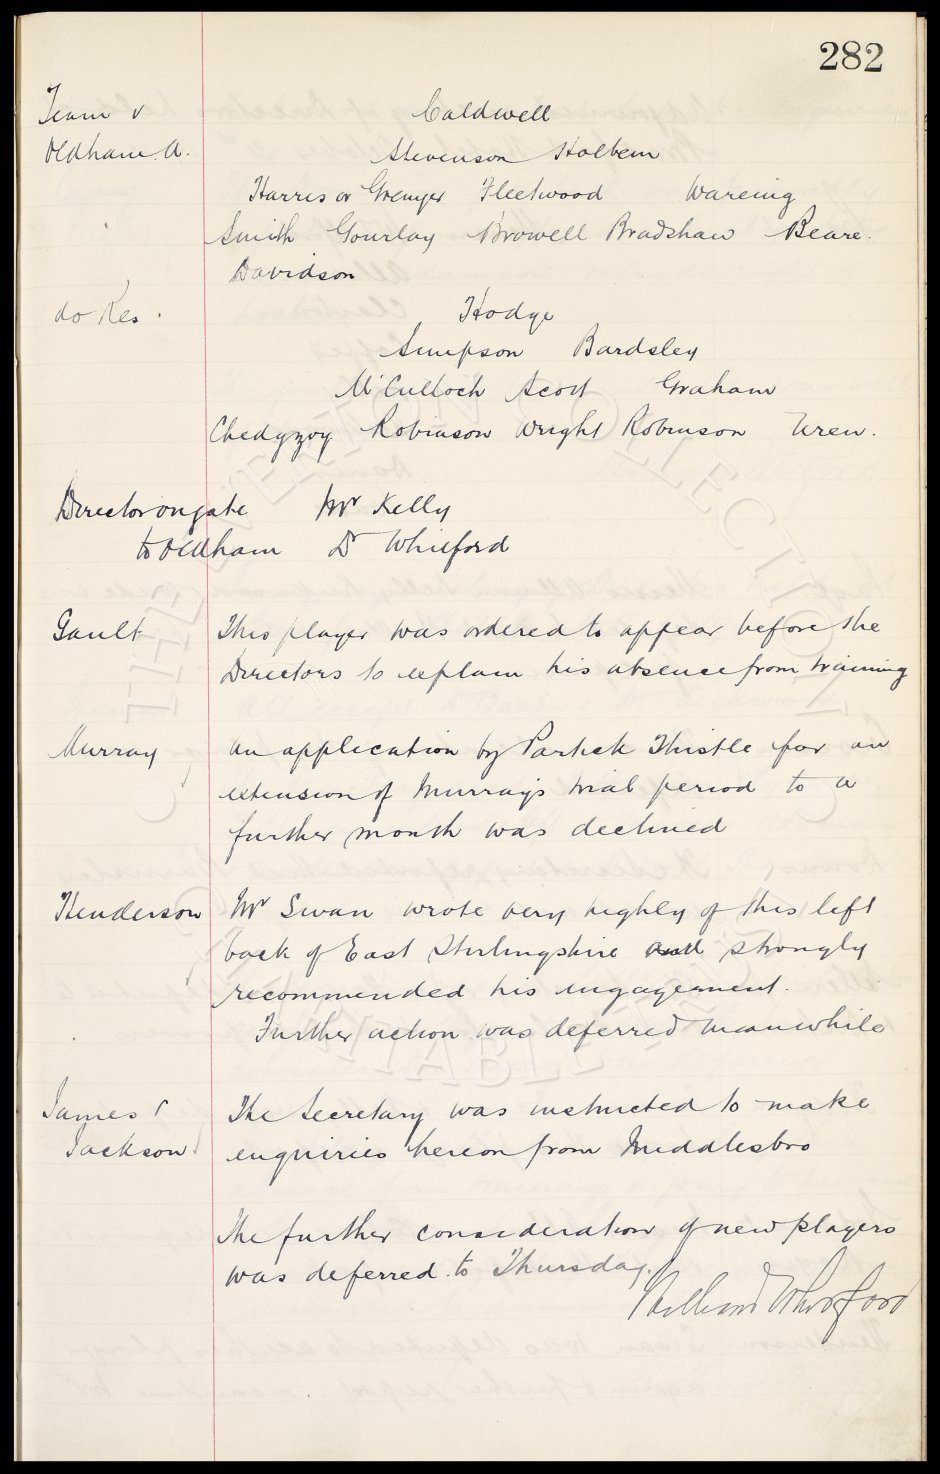 282
Team v Caldwell
Oldham A. Stevenson Holbem
Harris or Grenyer Fleetwood Wareing
Smith Gourlay Browell Bradshaw Beare.
Davidson
do Res. Hodge
Simpson Bardsley
McCulloch Scott Graham
Chedgzoy Robinson Wright Robinson Uren.
Director on gate Mr Kelly
to Oldham Dr Whitford
Gault This player was ordered to appear before the
Directors to explain his absence from training
Murray An application by Partick Thistle for an
extension of Murray's trial period to a
further month was declined
Henderson Mr Swan wrote very highly of this left
back of East Stirlingshire and strongly
recommended his engagement.
Further action was deferred meanwhile
James & The Secretary was instructed to make
Jackson enquiries hereon from Middlesbro
The further consideration of new players
was deferred to Thursday.
William Whitford